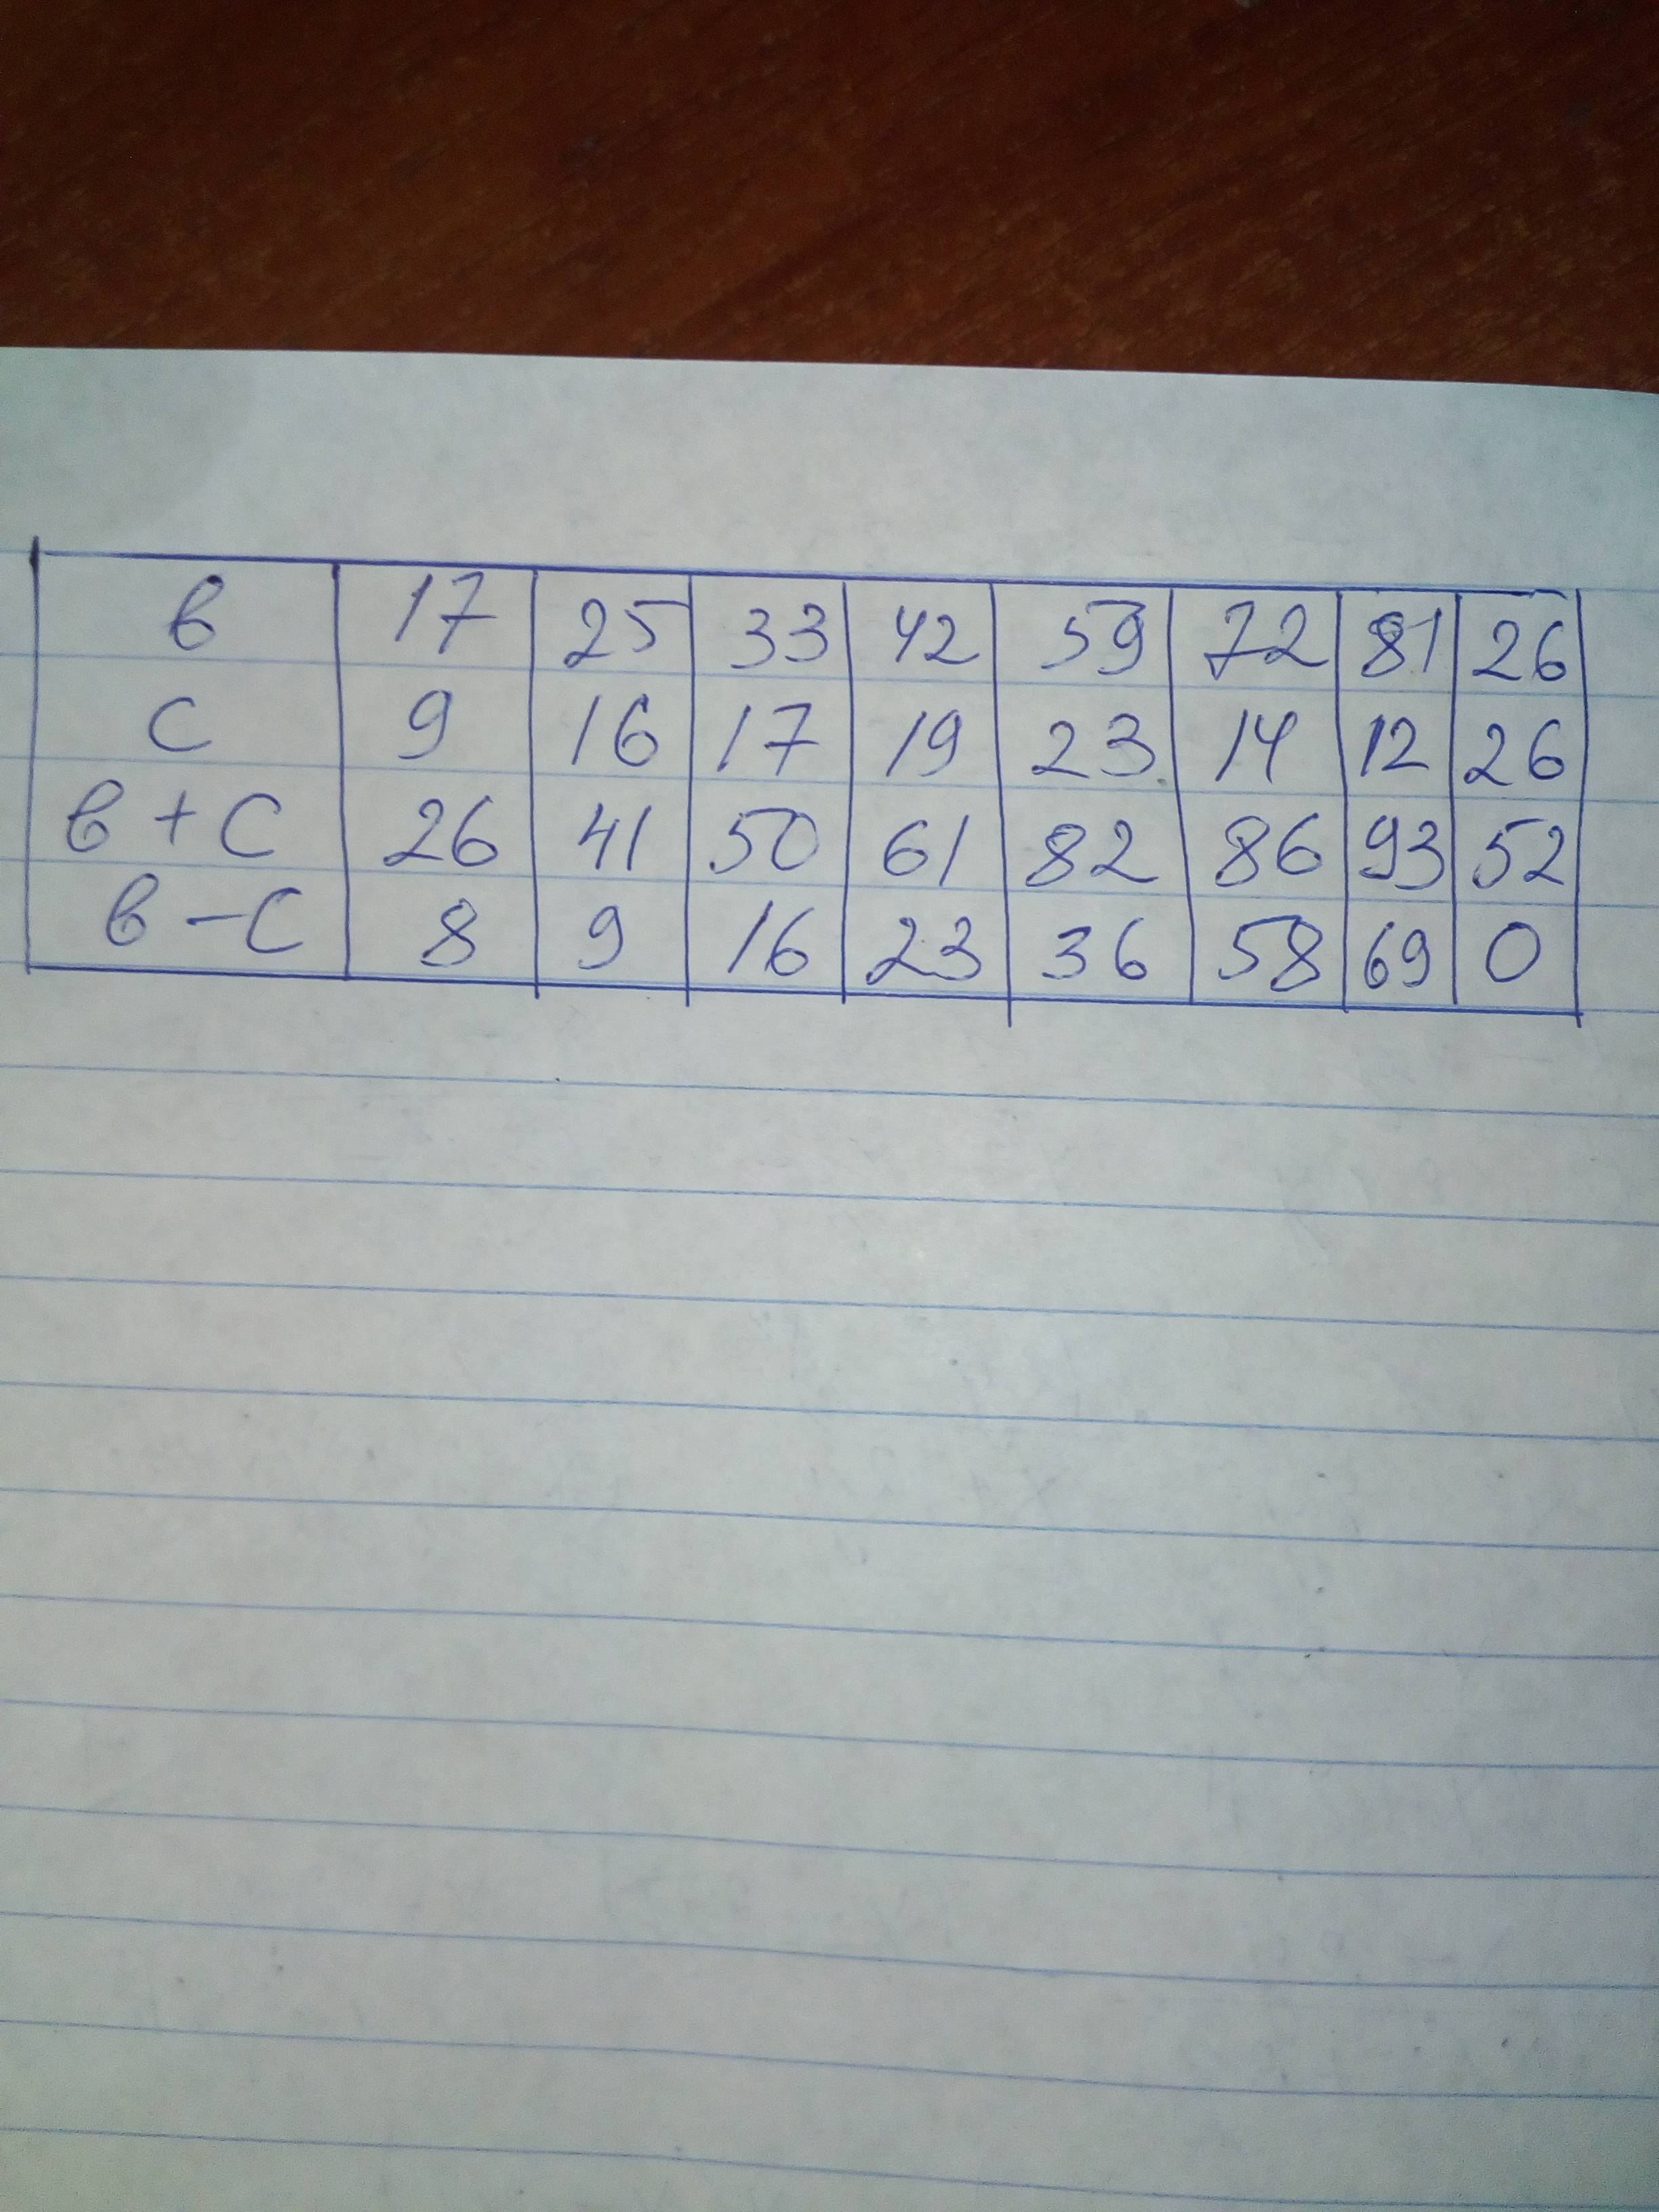 в 17 25 33 42 59 72 81 26
с 9 16 17 19 23 14 12 26
в + с 26 41 50 61 82 86 93 52
в - с 8 9 16 23 36 58 69 0